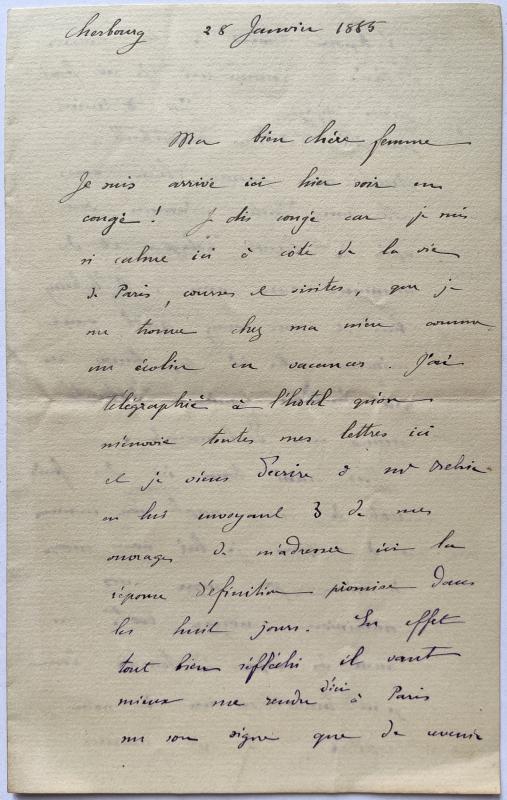 Cherbourg 28 Janvier 1885
Ma bien chère femme
Je suis arrivé ici hier soir en
congé ! Je dis congé car je suis
si calme ici à côté de la vie
de Paris, courses et visites, que je
me trouve chez ma mère comme
un écolier en vacances. J'ai
télégraphié à l'hotel qu'on
m'envoie toutes mes lettres ici
et je viens d'écrire à mr
en lui envoyant 3 de mes
ouvrages de m'adresser ici la
réponse définitive promise dans
les huit jours. En effet
tout bien réfléchi il vaut
mieux me rendre d'ici à Paris
sur son signe que de revenir